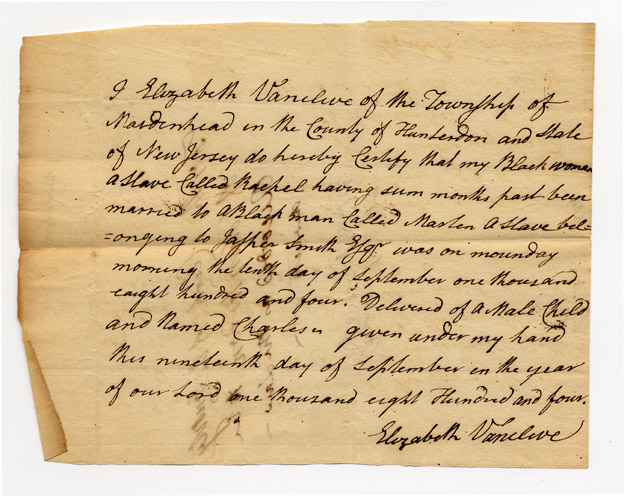 I Elizabeth Vanclive of the Township of
Maidenhead in the County of Hunterdon and State
of New Jersey do hereby Certify that my Black woman
A Slave Called Rachel having sum months past been
married to A Black man Called Marten A Slave bel=
=onging to Jasper Smith Esqr was on mounday
morning the tenth day of September one thousand
eaight hundred and four. Delivered of A Male Child
and Named Charles given under my hand
this nineteenth day of September in the year
of our Lord one thousand eight Hundred and four.
Elizabeth Vanclive